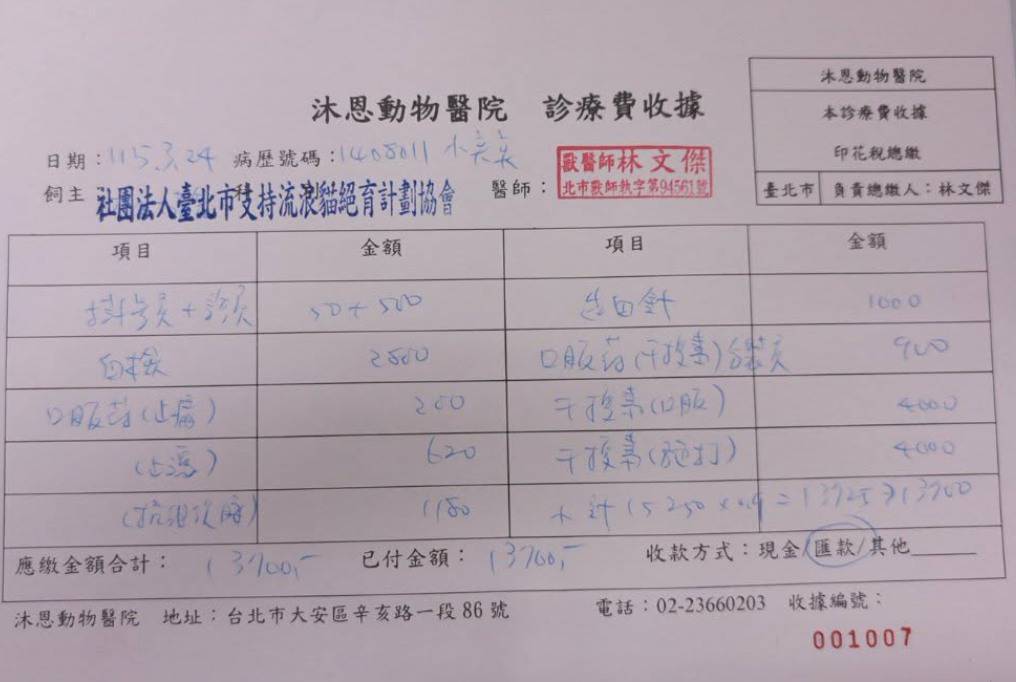 沐恩動物醫院
本診療費收據
印花稅總繳
臺北市 負責總繳人：林文傑
沐恩動物醫院 診療費收據
日期：115.3.24 病歷號碼：1408011 小吳吳
飼主 社團法人臺北市支持流浪貓絕育計劃協會 醫師：獸醫師林文傑
北市獸師執字第94561號
項目 金額 項目 金額
掛号費+診費 50+500 造血針 1000
血檢 2800 口服葯(干擾素)分裝費 900
口服葯(止痛) 200 干擾素(口服) 4000
(止瀉) 620 干擾素(施打) 4000
1180 小計 15250×0.9=13725→13700
應繳金額合計：13700,- 已付金額：13700,- 收款方式：現金/匯款/其他______
沐恩動物醫院 地址：台北市大安區辛亥路一段86號 電話：02-23660203 收據編號：
001007